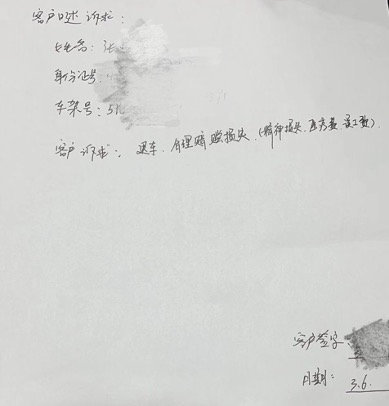 客户口述诉求:
姓名: 张
身份证号:
车架号:
客户诉求: 退车、合理赔偿损失、(精神损失、医疗费、误工费)
客户签字:
日期: 3.6.